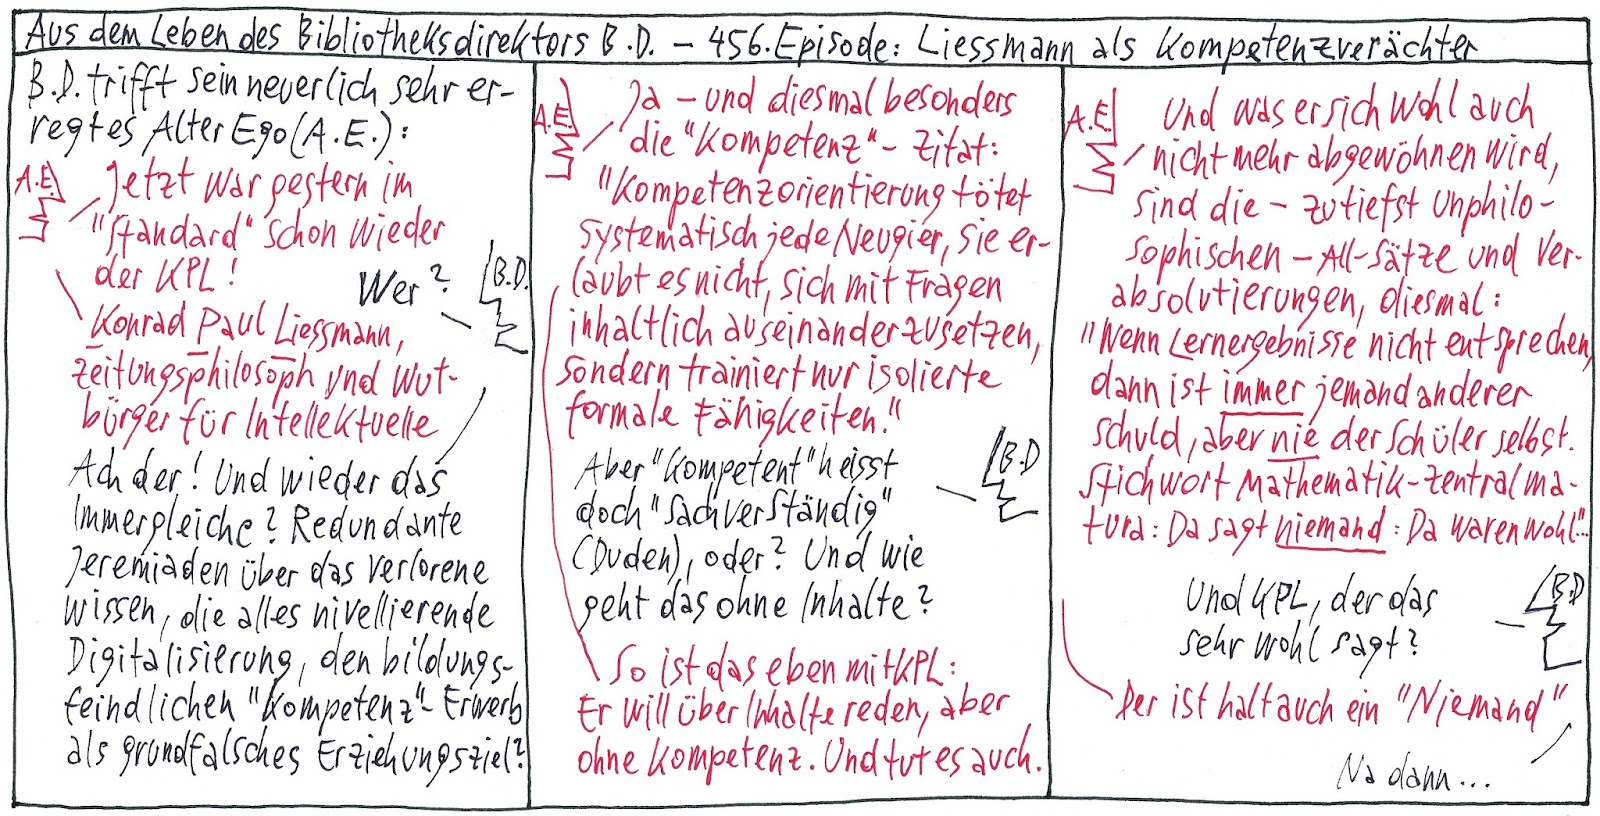 Aus dem Leben des Bibliotheksdirektors B.D. – 456. Episode: Liessmann als Kompetenzverächter
B.D. trifft sein neuerlich sehr er-
regtes Alter Ego (A.E.):
A.E.
Jetzt war gestern im
"Standard" schon wieder
der KPL!
B.D.
Wer?
Konrad Paul Liessmann,
Zeitungsphilosoph und Wut-
bürger für Intellektuelle
Ach der! Und wieder das
Immergleiche? Redundante
Jeremiaden über das verlorene
Wissen, die alles nivellierende
Digitalisierung, den bildungs-
feindlichen "Kompetenz"-Erwerb
als grundfalsches Erziehungsziel?
A.E.
Ja – und diesmal besonders
die "Kompetenz" – Zitat:
"Kompetenzorientierung tötet
systematisch jede Neugier, sie er-
laubt es nicht, sich mit Fragen
inhaltlich auseinanderzusetzen,
sondern trainiert nur isolierte
formale Fähigkeiten."
B.D
Aber "Kompetent" heisst
doch "sachverständig"
(Duden), oder? Und wie
geht das ohne Inhalte?
So ist das eben mit KPL:
Er will über Inhalte reden, aber
ohne Kompetenz. Und tut es auch.
A.E.
Und was er sich wohl auch
nicht mehr abgewöhnen wird,
sind die – zutiefst unphilo-
sophischen – All-Sätze und Ver-
absolutierungen, diesmal:
"Wenn Lernergebnisse nicht entsprechen,
dann ist immer jemand anderer
schuld, aber nie der Schüler selbst.
Stichwort Mathematik-Zentralma-
tura: Da sagt niemand: Da waren wohl"...
B.D
Und KPL, der das
sehr wohl sagt?
Der ist halt auch ein "Niemand"
Na dann...